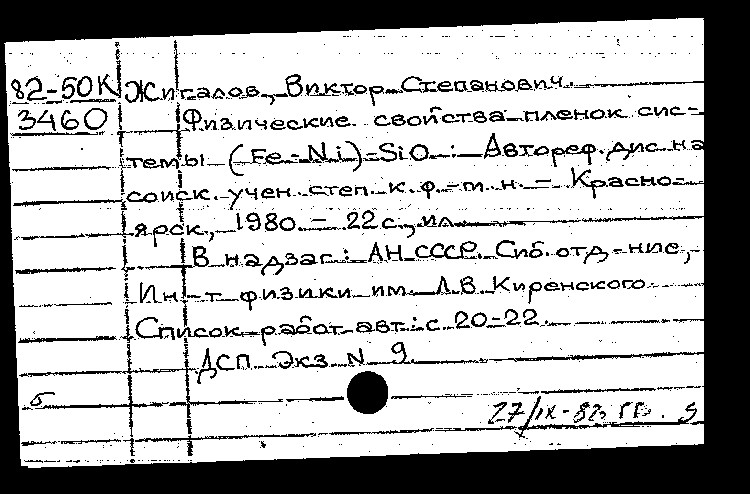 82-50К Жигалов, Виктор Степанович.
3460 Физические свойства пленок сис-
темы (Fe-Ni)-SiO: Автореф. дис на
соиск. учен. степ. к. ф.-м. н. - Красно-
ярск, 1980. - 22 с., ил.
В надзаг: АН СССР. Сиб. отд-ние,
Ин-т физики им. Л.В. Киренского
Список работ авт: с 20-22.
ДСП Экз N 9.
б
27/IX-82